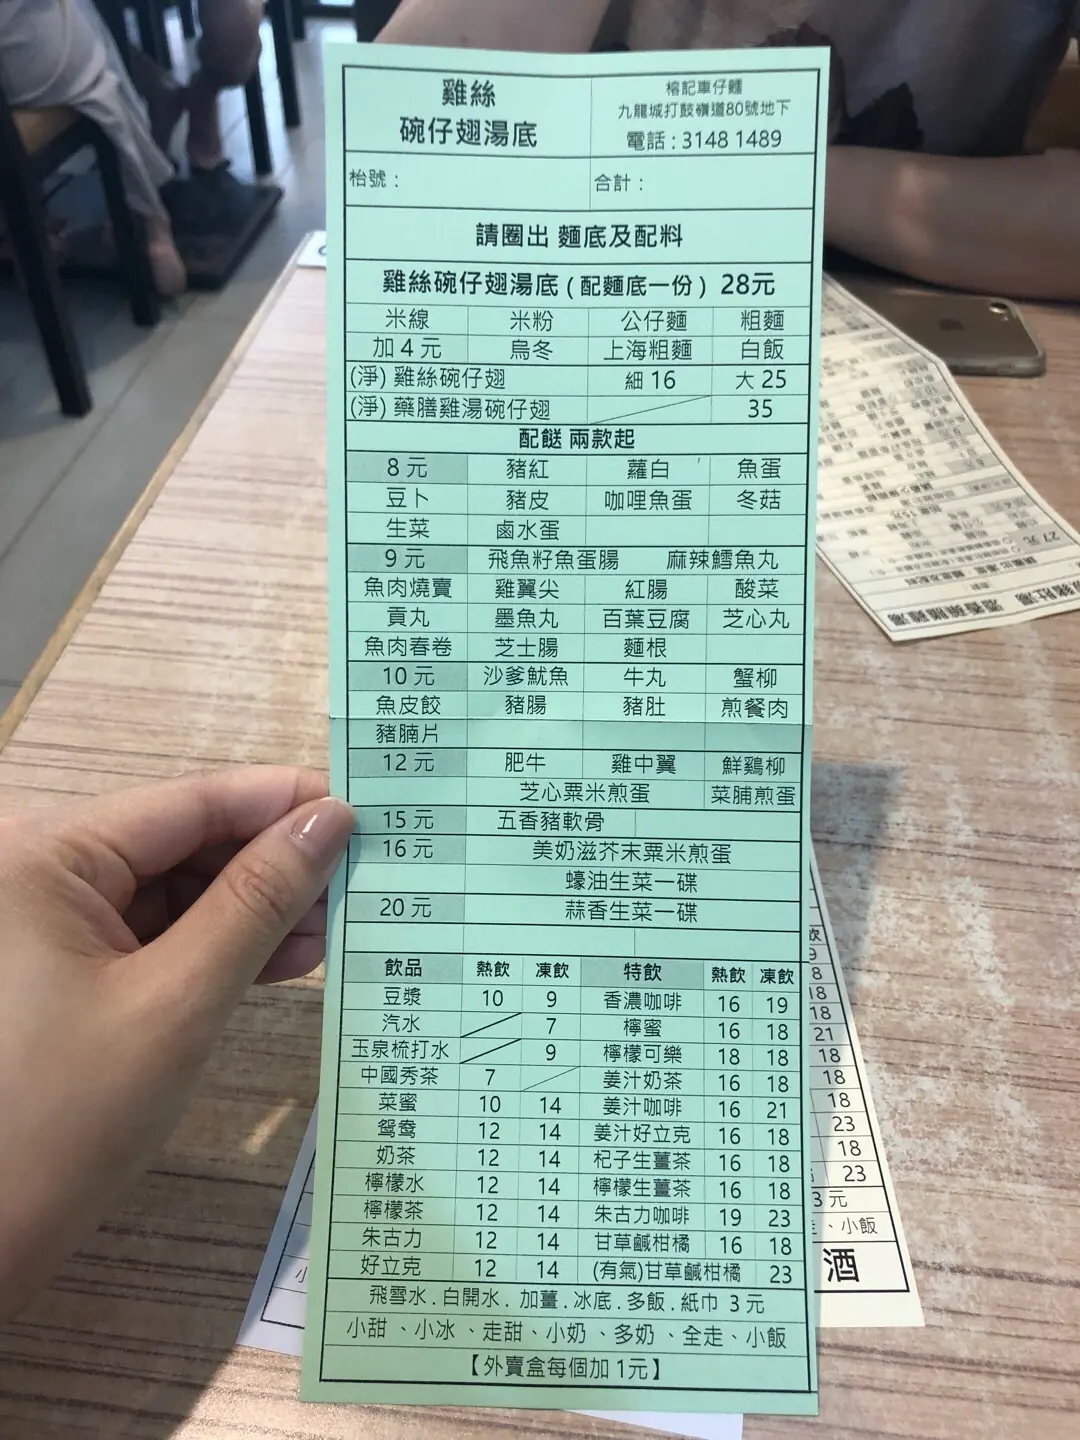 雞絲
碗仔翅湯底
榕記車仔麵
九龍城打鼓嶺道80號地下
電話 : 3148 1489
枱號 :
合計 :
請圈出 麵底及配料
雞絲碗仔翅湯底 ( 配麵底一份 ) 28元
米線 米粉 公仔麵 粗麵
加 4 元 烏冬 上海粗麵 白飯
(淨) 雞絲碗仔翅 細 16 大 25
(淨) 藥膳雞湯碗仔翅 35
配餸 兩款起
8 元 豬紅 蘿白 魚蛋
豆卜 豬皮 咖哩魚蛋 冬菇
生菜 鹵水蛋
9 元 飛魚籽魚蛋腸 麻辣鱈魚丸
魚肉燒賣 雞翼尖 紅腸 酸菜
貢丸 墨魚丸 百葉豆腐 芝心丸
魚肉春卷 芝士腸 麵根
10 元 沙爹魷魚 牛丸 蟹柳
魚皮餃 豬腸 豬肚 煎餐肉
豬腩片
12 元 肥牛 雞中翼 鮮鷄柳
芝心粟米煎蛋 菜脯煎蛋
15 元 五香豬軟骨
16 元 美奶滋芥末粟米煎蛋
蠔油生菜一碟
20 元 蒜香生菜一碟
飲品 熱飲 凍飲 特飲 熱飲 凍飲
豆漿 10 9 香濃咖啡 16 19
汽水 7 檸蜜 16 18
玉泉梳打水 9 檸檬可樂 18 18
中國秀茶 7 姜汁奶茶 16 18
菜蜜 10 14 姜汁咖啡 16 21
鴛鴦 12 14 姜汁好立克 16 18
奶茶 12 14 杞子生薑茶 16 18
檸檬水 12 14 檸檬生薑茶 16 18
檸檬茶 12 14 朱古力咖啡 19 23
朱古力 12 14 甘草鹹柑橘 16 18
好立克 12 14 (有氣)甘草鹹柑橘 23
飛雪水 . 白開水 . 加薑 . 冰底 . 多飯 . 紙巾 3 元
小甜 、小冰 、走甜、小奶 、多奶 、全走、小飯
【外賣盒每個加 1元】
18
18
21
18
18
18
23
18
23
3 元
、小飯
酒
27 元